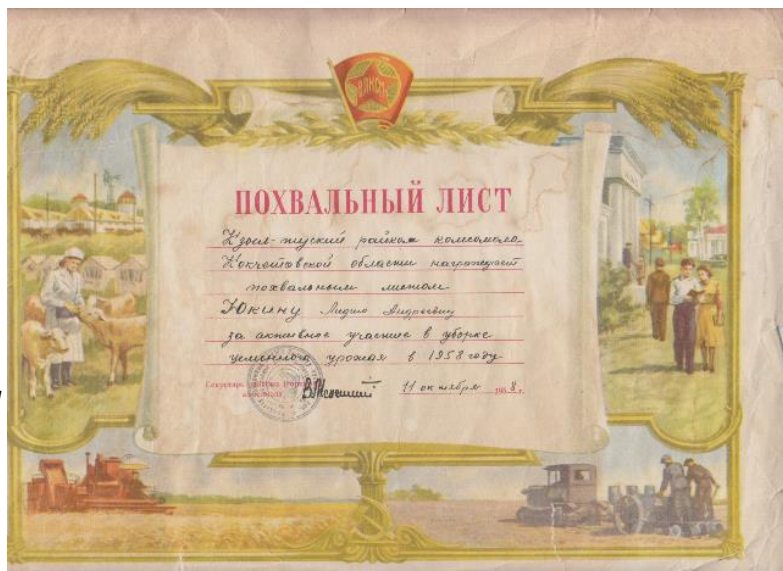 ВЛКСМ
ПОХВАЛЬНЫЙ ЛИСТ
Кзыл-туский райком комсомола
Кокчетавской области награждает
похвальным листом
Юкину Лидию Андреевну
за активное участие в уборке
целинного урожая в 1958 году
Секретарь
комсомола
11 октября 1958 г.